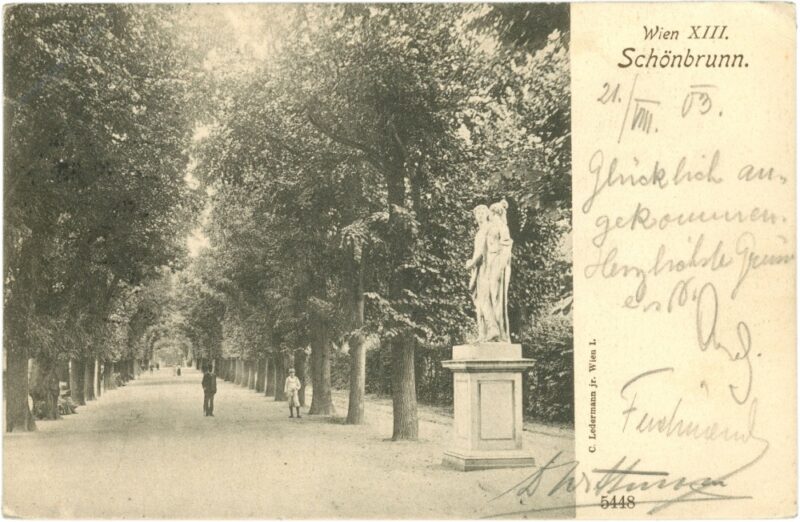 Wien XIII.
Schönbrunn.
21./VIII. 03.
Glücklich an-
gekommen.
Herzlichste Grüsse
Ferdinand
C. Ledermann jr. Wien I.
5448